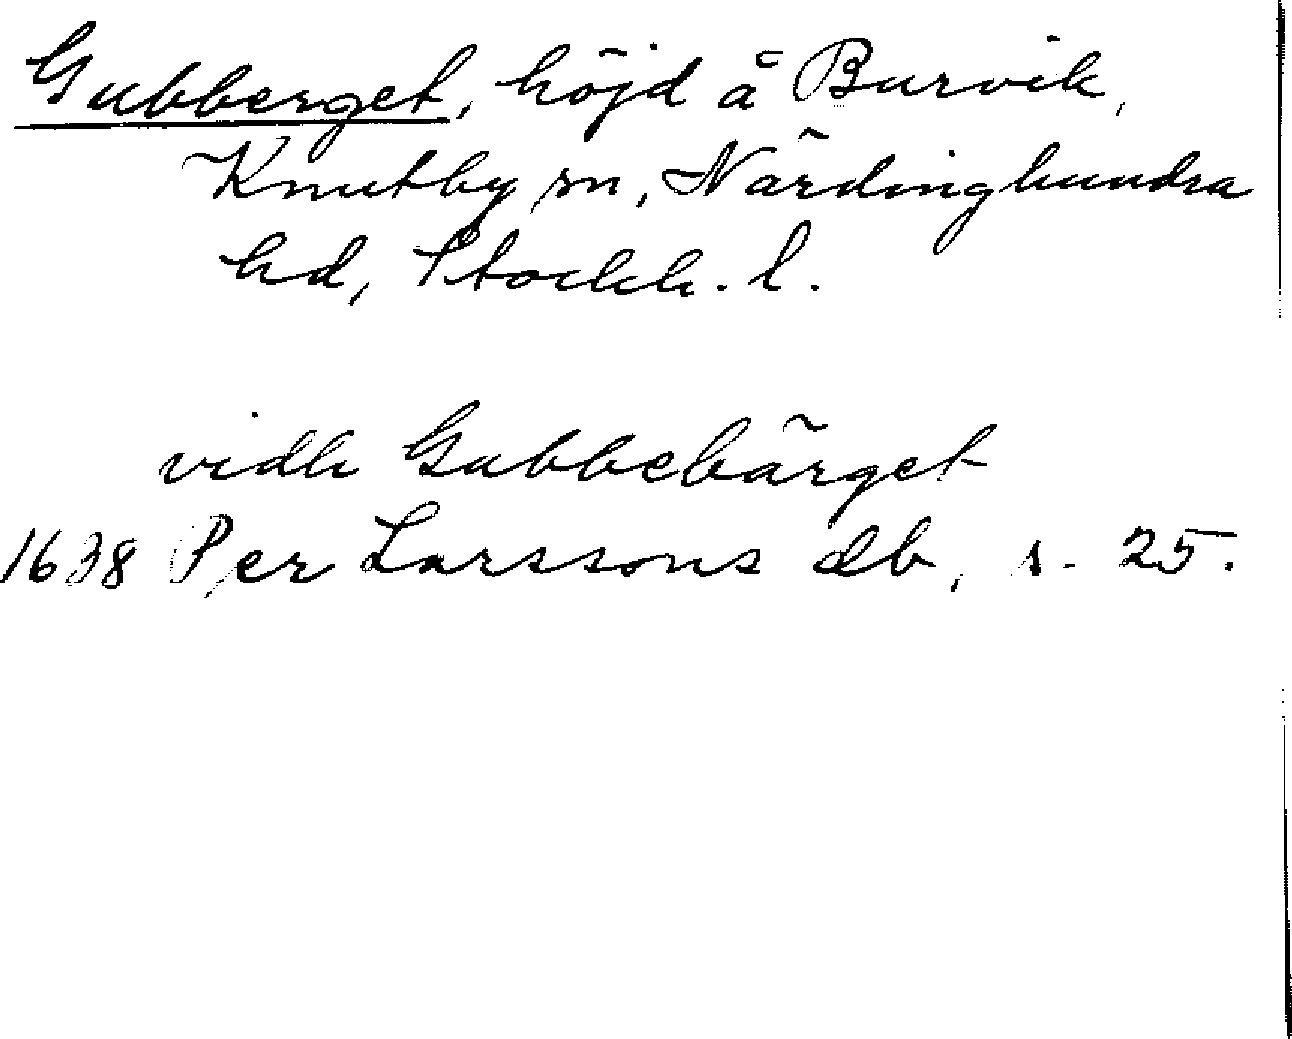 Gubberget, höjd å Burvik,
Knutby sn, Närdinghundra
hd, Stockh. l.
vidh Gubbebärget
1638 Per Larssons db, s. 25.